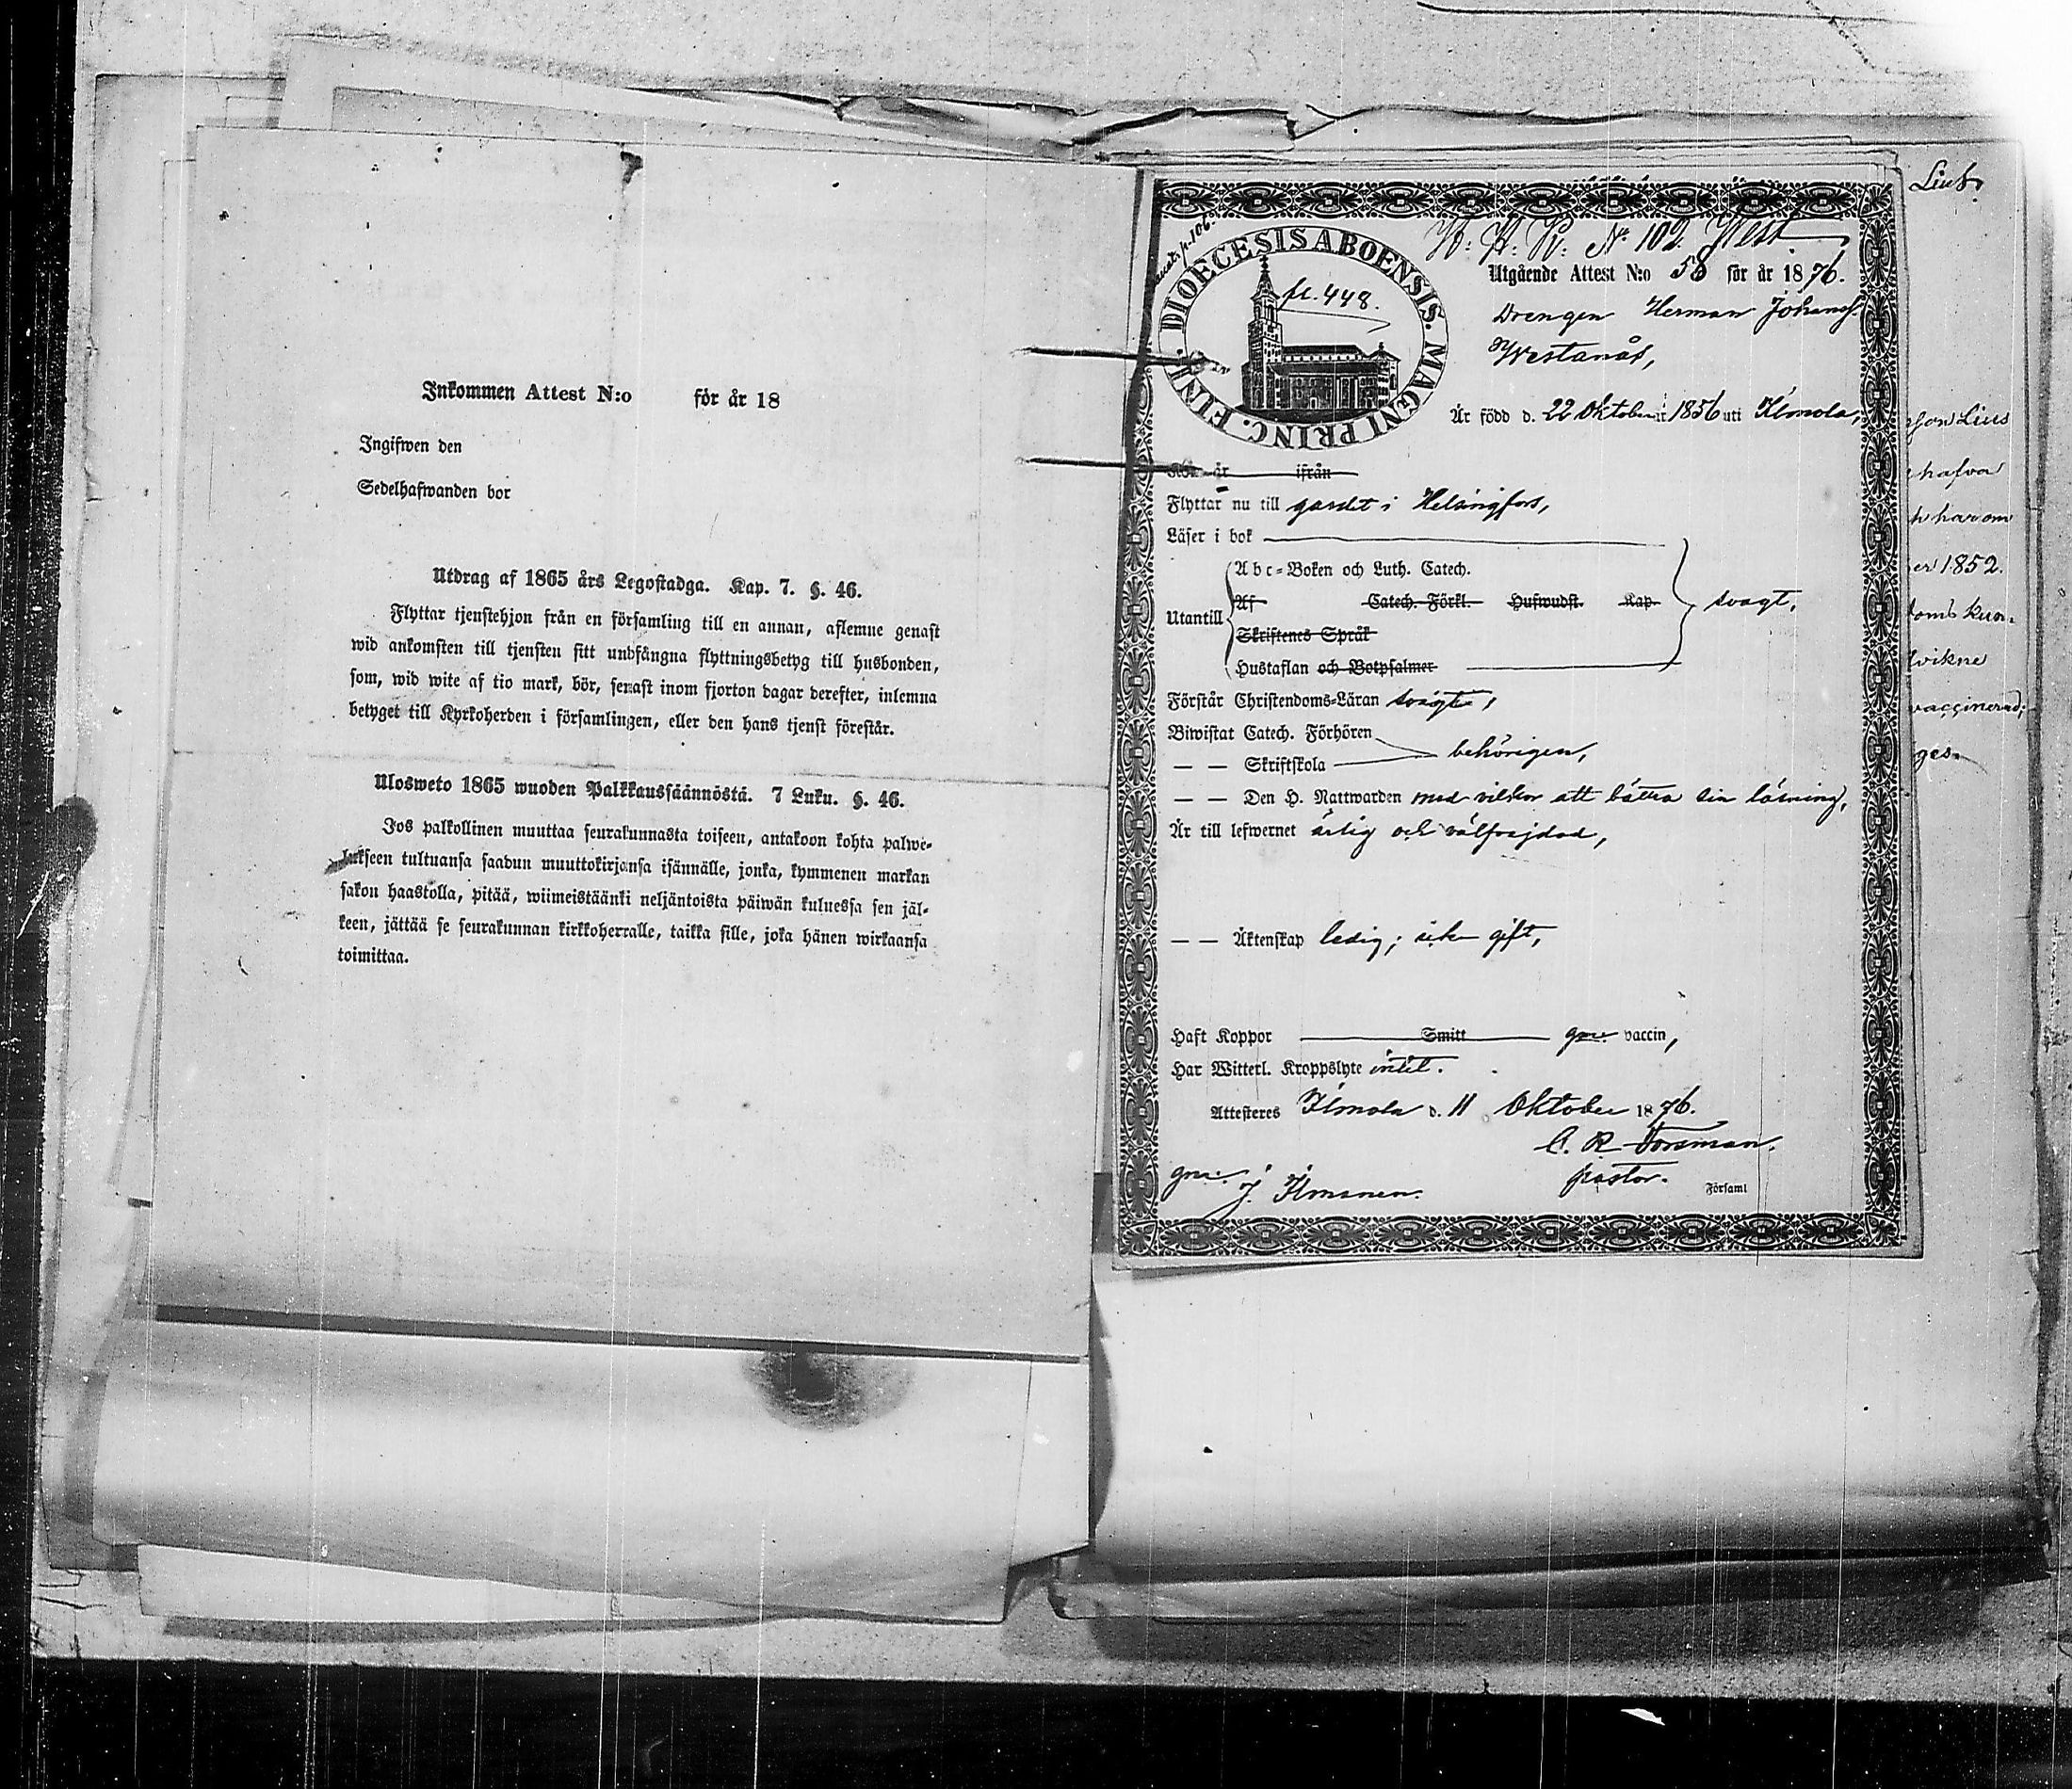 Inkommen Attest N:o för år 18
Ingifwen den
Sedelhafwanden bor
Utdrag af 1865 års Legostadga. Kap. 7. §. 46.
Flyttar tjenstehjon från en församling till en annan, aflemne genast
wid ankomsten till tjensten sitt undfångna flyttningsbetyg till husbonden,
som, wid wite af tio mark, bör, senast inom fjorton dagar derefter, inlemna
betyget till Kyrkoherden i församlingen, eller den hans tjenst förestår.
Ulosweto 1865 wuoden Palkkaussäännöstä. 7 Luku. §. 46.
Jos palkollinen muuttaa seurakunnasta toiseen, antakoon kohta palwe-
lukseen tultuansa saadun muuttokirjansa isännälle, jonka, kymmenen markan
sakon haastolla, pitää, wiimeistäänki neljäntoista päiwän kuluessa sen jäl-
keen, jättää se seurakunnan kirkkoherralle, taikka sille, joka hänen wirkaansa
toimittaa.
p. 106.
DIOECESIS ABOENSIS. MAGNI PRINC. FINL.
fl. 448.
N:o 102 West
Utgående Attest N:o 58 för år 1876.
Drengen Herman Johansf.
Westanås,
Är född d. 22 Oktober 1856 uti Ilmola,
Kom år ifrån
Flyttar nu till gardet i Helsingfors,
Läser i bok
Abc-Boken och Luth. Catech.
Af Catech. Förkl. Hufwudst. Kap.
Utantill svagt,
Skriftenes Språk
Hustaflan och Botpsalmer
Förstår Christendoms-Läran svagt,
Biwistat Catech. Förhören
— — Skriftskola behörigen,
— — Den H. Nattwarden med vilkor att bättra sin läsning,
Är till lefwernet ärlig och välfrejdad,
— — Äktenskap ledig; icke gift,
Haft Koppor Smitt gnm vaccin,
Har Witterl. Kroppslyte intet.
Attesteres Ilmola d. 11 Oktober 1876.
C. R. Forsman.
pastor. Församl
gnm J. Ilmonen.
Lius
hafva
har om
1852.
kun-
vaccinerad;